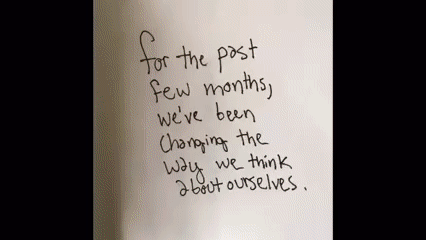 for the past
few months,
we've been
changing the
way we think
about ourselves.